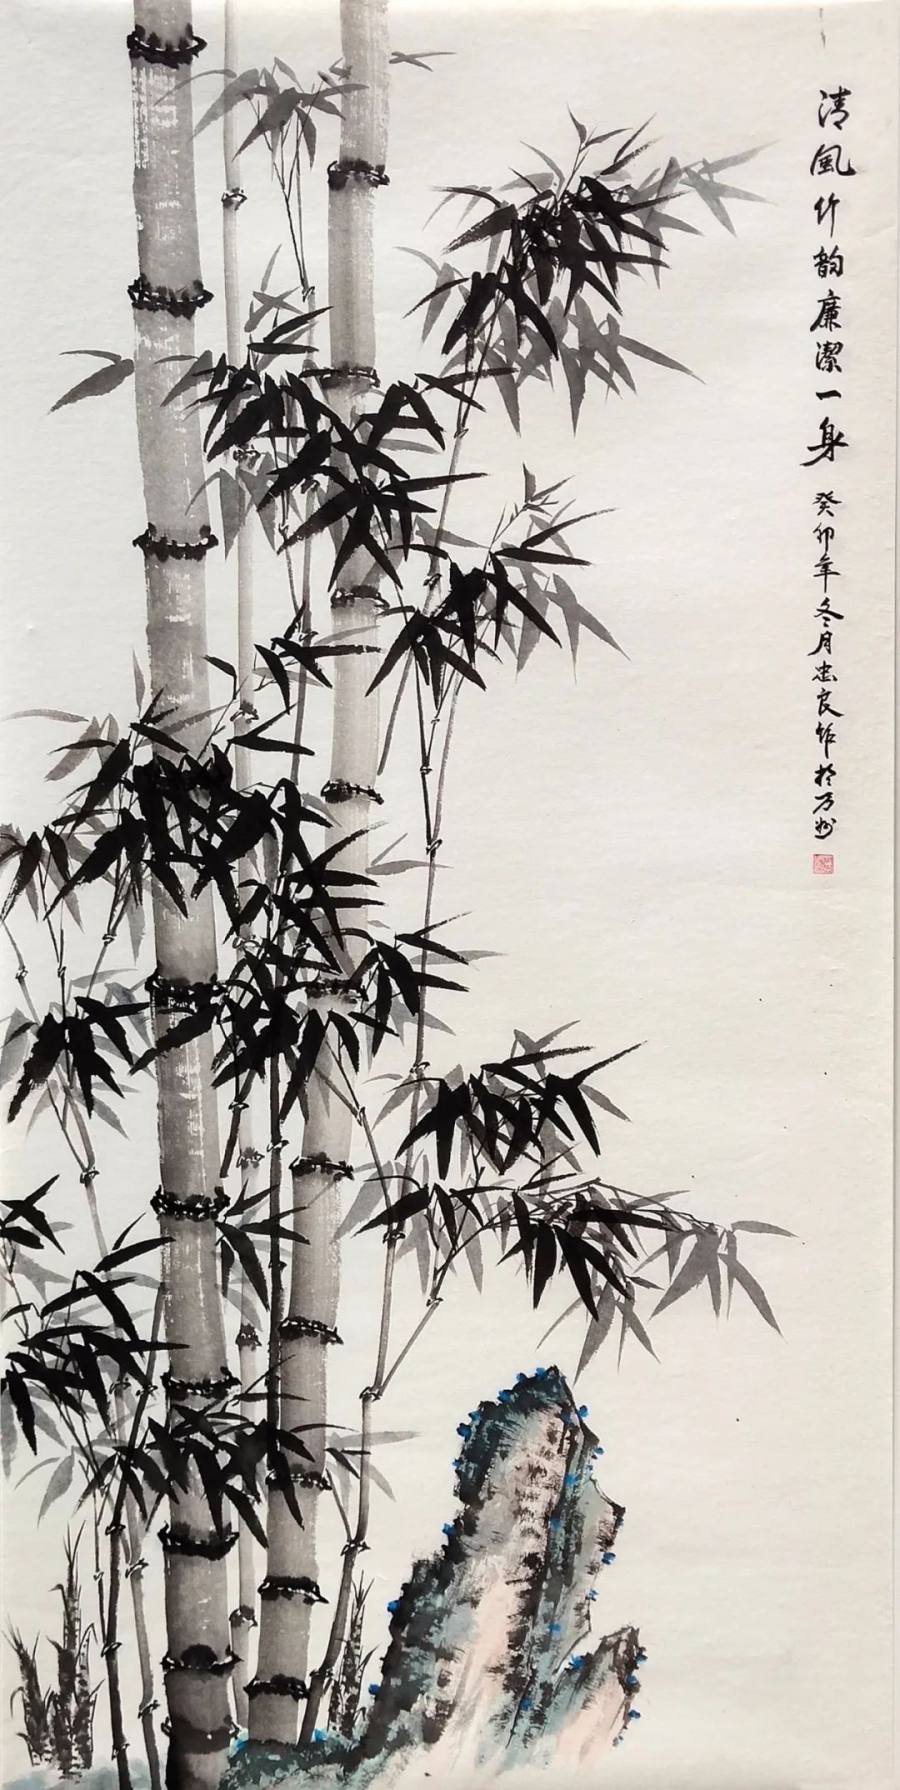 清風竹韵廉潔一身 癸卯年冬月忠良作於万州